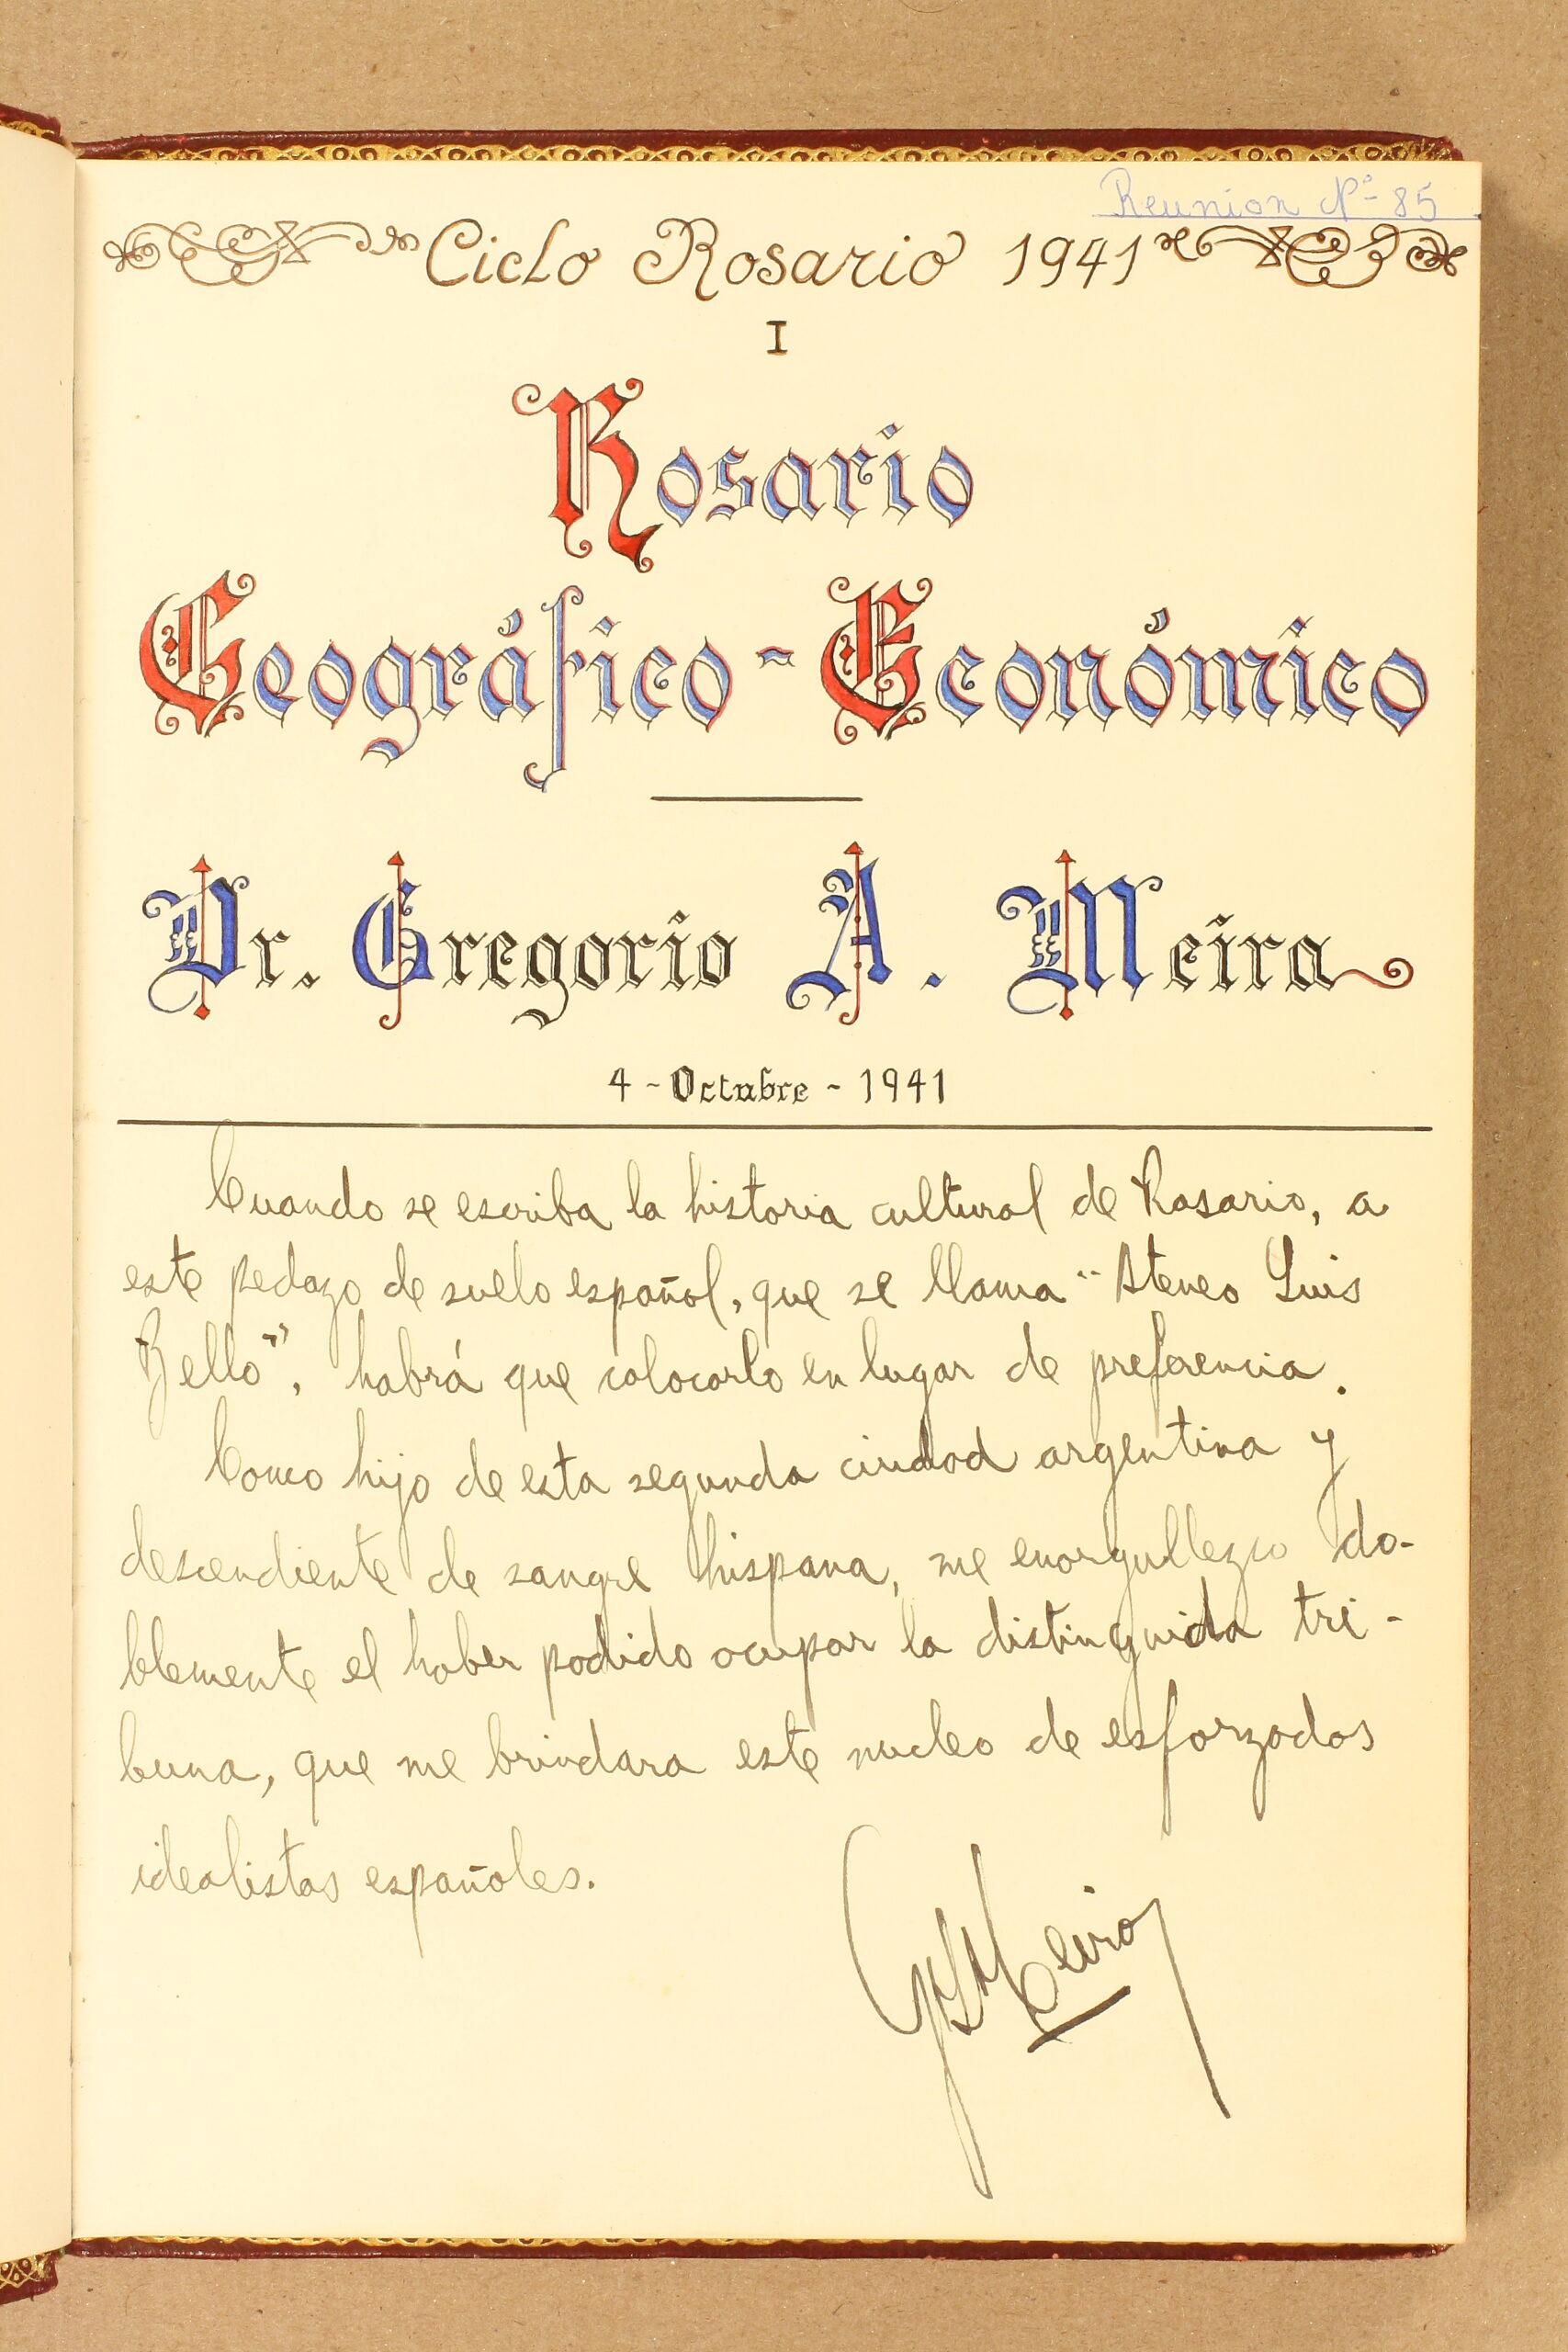 Reunion Nº 85
Ciclo Rosario 1941
I
Rosario
Geográfico-Económico
Dr. Gregorio A. Meira
4-Octubre-1941
Cuando se escriba la historia cultural de Rosario, a
este pedazo de suelo español, que se llama "Ateneo Luis
Bello", habrá que colocarlo en lugar de preferencia.
Como hijo de esta segunda ciudad argentina y
descendiente de sangre hispana, me enorgullezco do-
blemente el haber podido ocupar la distinguida tri-
buna, que me brindara este nucleo de esforzados
idealistas españoles.
GAMeira